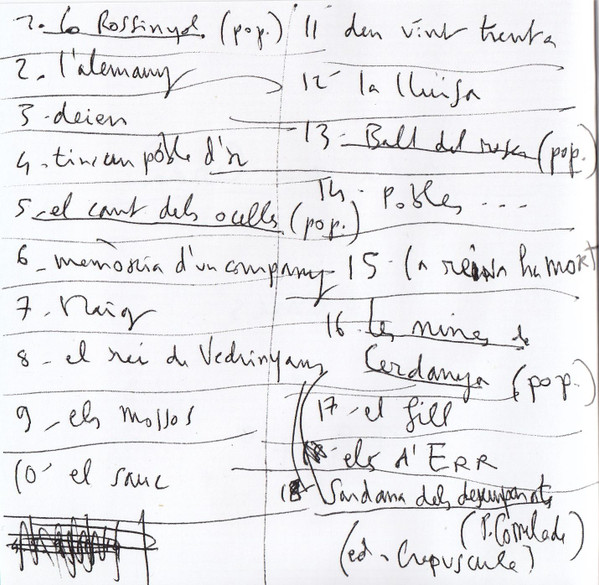 1. Lo Rossinyol. (pop.)
2. l'alemany
3. deien
4. tinc un poble d'or
5. el cant dels ocells (pop.)
6. memòria d'un company
7. Maig
8. el rei de Vedrinyans
9. els mossos
10. el sauc
11. den vint trenta
12. la lluïsa
13. Ball del roser (pop.)
14. Pobles ...
15. la reina ha mort
16. Les nines de
Cerdanya (pop.)
17. el fill
els d'ERR
18. Sardana dels desemparats
(P. Correlade)
(ed. Crepuscule)